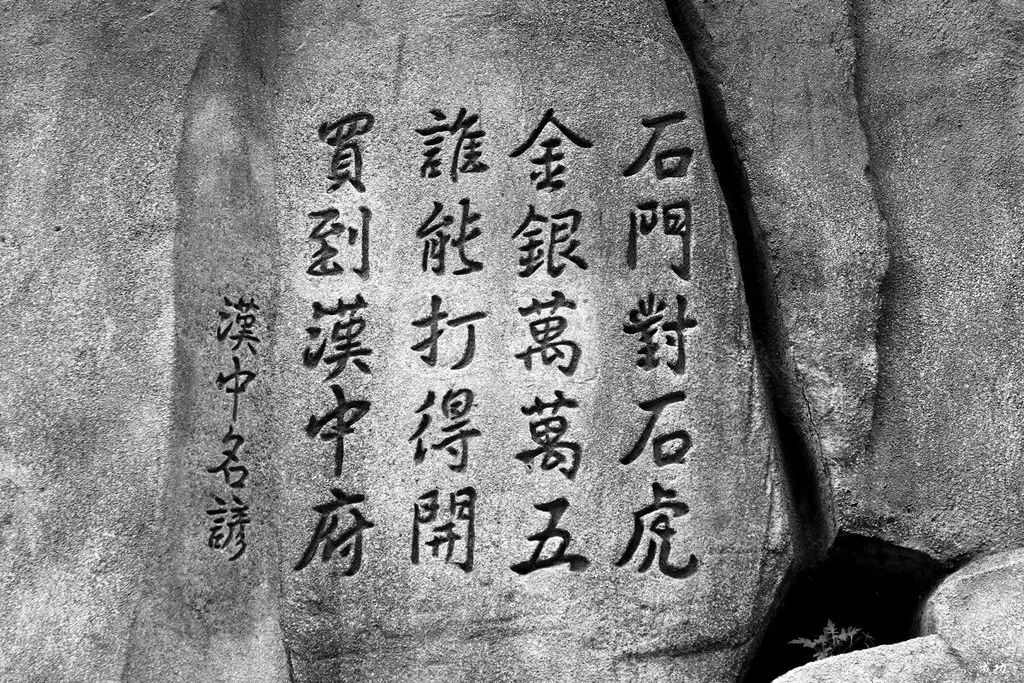 石門對石虎
金銀萬萬五
誰能打得開
買到漢中府
漢中名諺